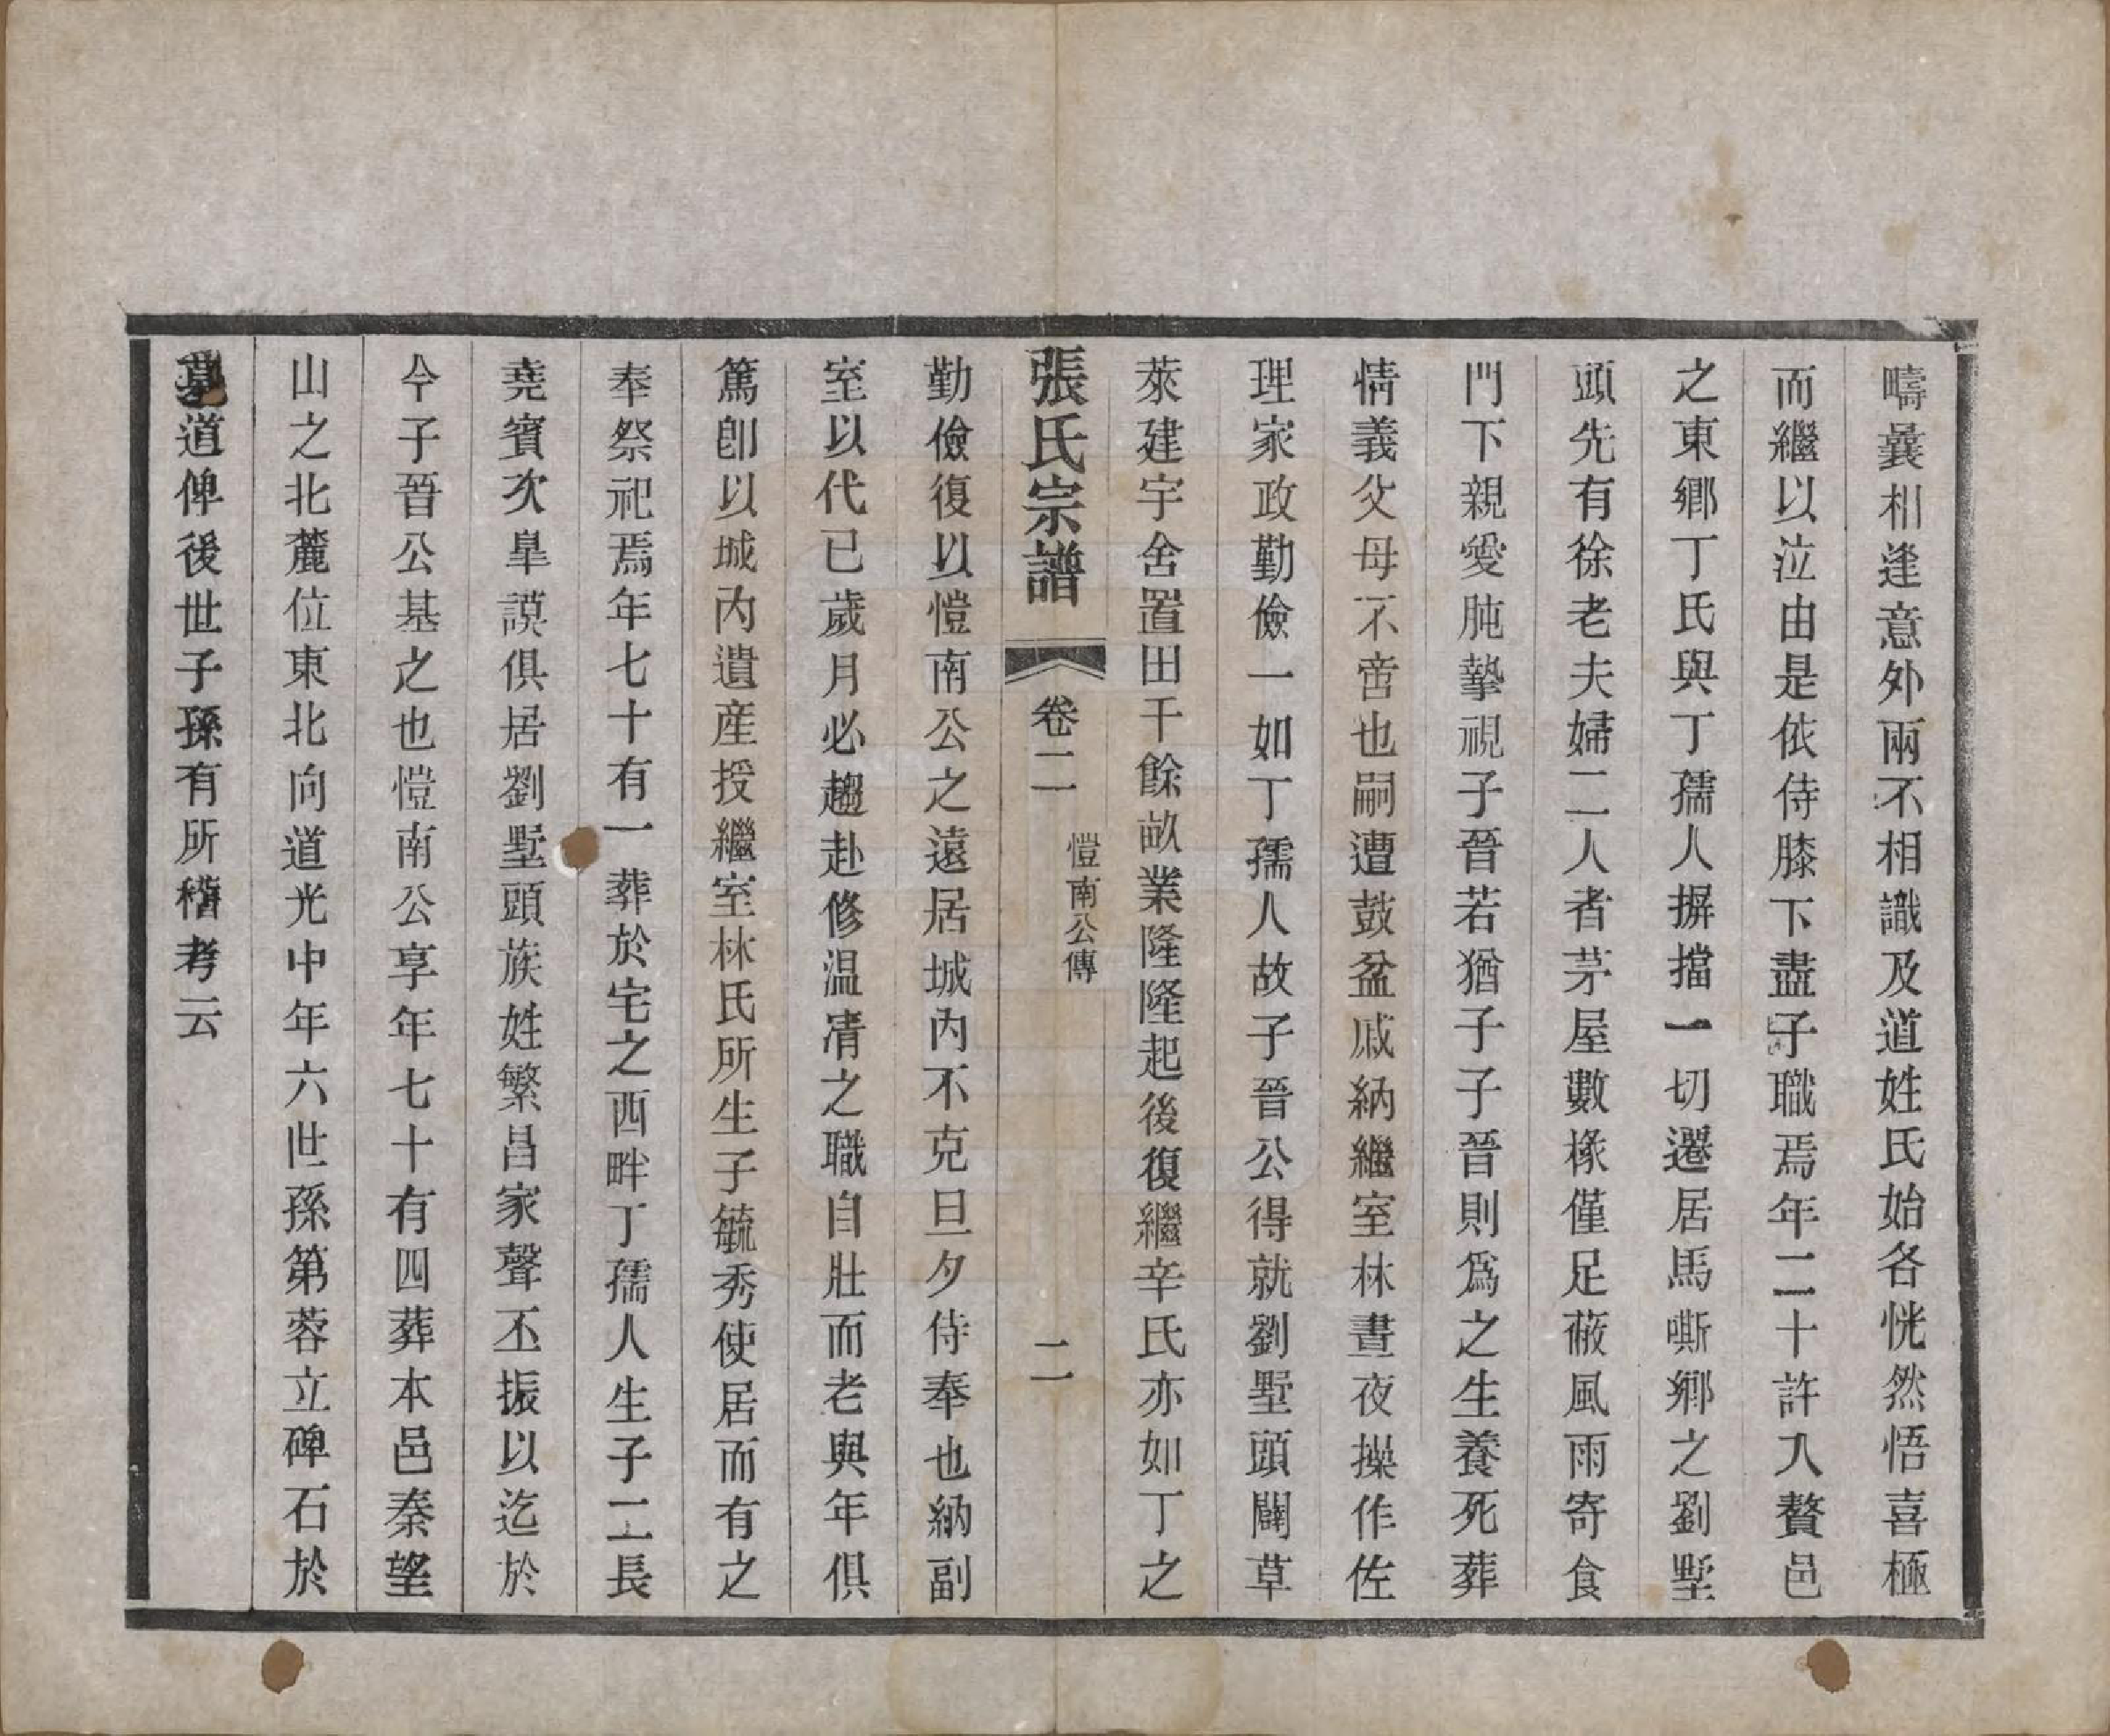 疇曩相逢意外兩不相識及道姓氏始各恍然悟喜極
而繼以泣由是依侍膝下盡子職焉年二十許入贅邑
之東鄉丁氏與丁孺人摒擋一切遷居馬嘶鄉之劉墅
頭先有徐老夫婦二人者茅屋數椽僅足蔽風雨寄食
門下親愛肫摯視子晉若猶子子晉則爲之生養死葬
情義父母不啻也嗣遭鼓盆戚納繼室林晝夜操作佐
理家政勤儉一如丁孺人故子晉公得就劉墅頭闢草
萊建宇舍置田千餘畝業隆隆起後復繼辛氏亦如丁之
張氏宗譜 卷二 愷南公傳 二
勤儉復以愷南公之遠居城內不克旦夕侍奉也納副
室以代已歲月必趨赴修温凊之職自壯而老與年俱
篤卽以城內遺産授繼室林氏所生子毓秀使居而有之
奉祭祀焉年七十有一葬於宅之西畔丁孺人生子二長
堯賓次臯謨俱居劉墅頭族姓繁昌家聲丕振以迄於
今子晉公基之也愷南公享年七十有四葬本邑秦望
山之北麓位東北向道光中年六世孫第蓉立碑石於
墓道俾後世子孫有所稽考云